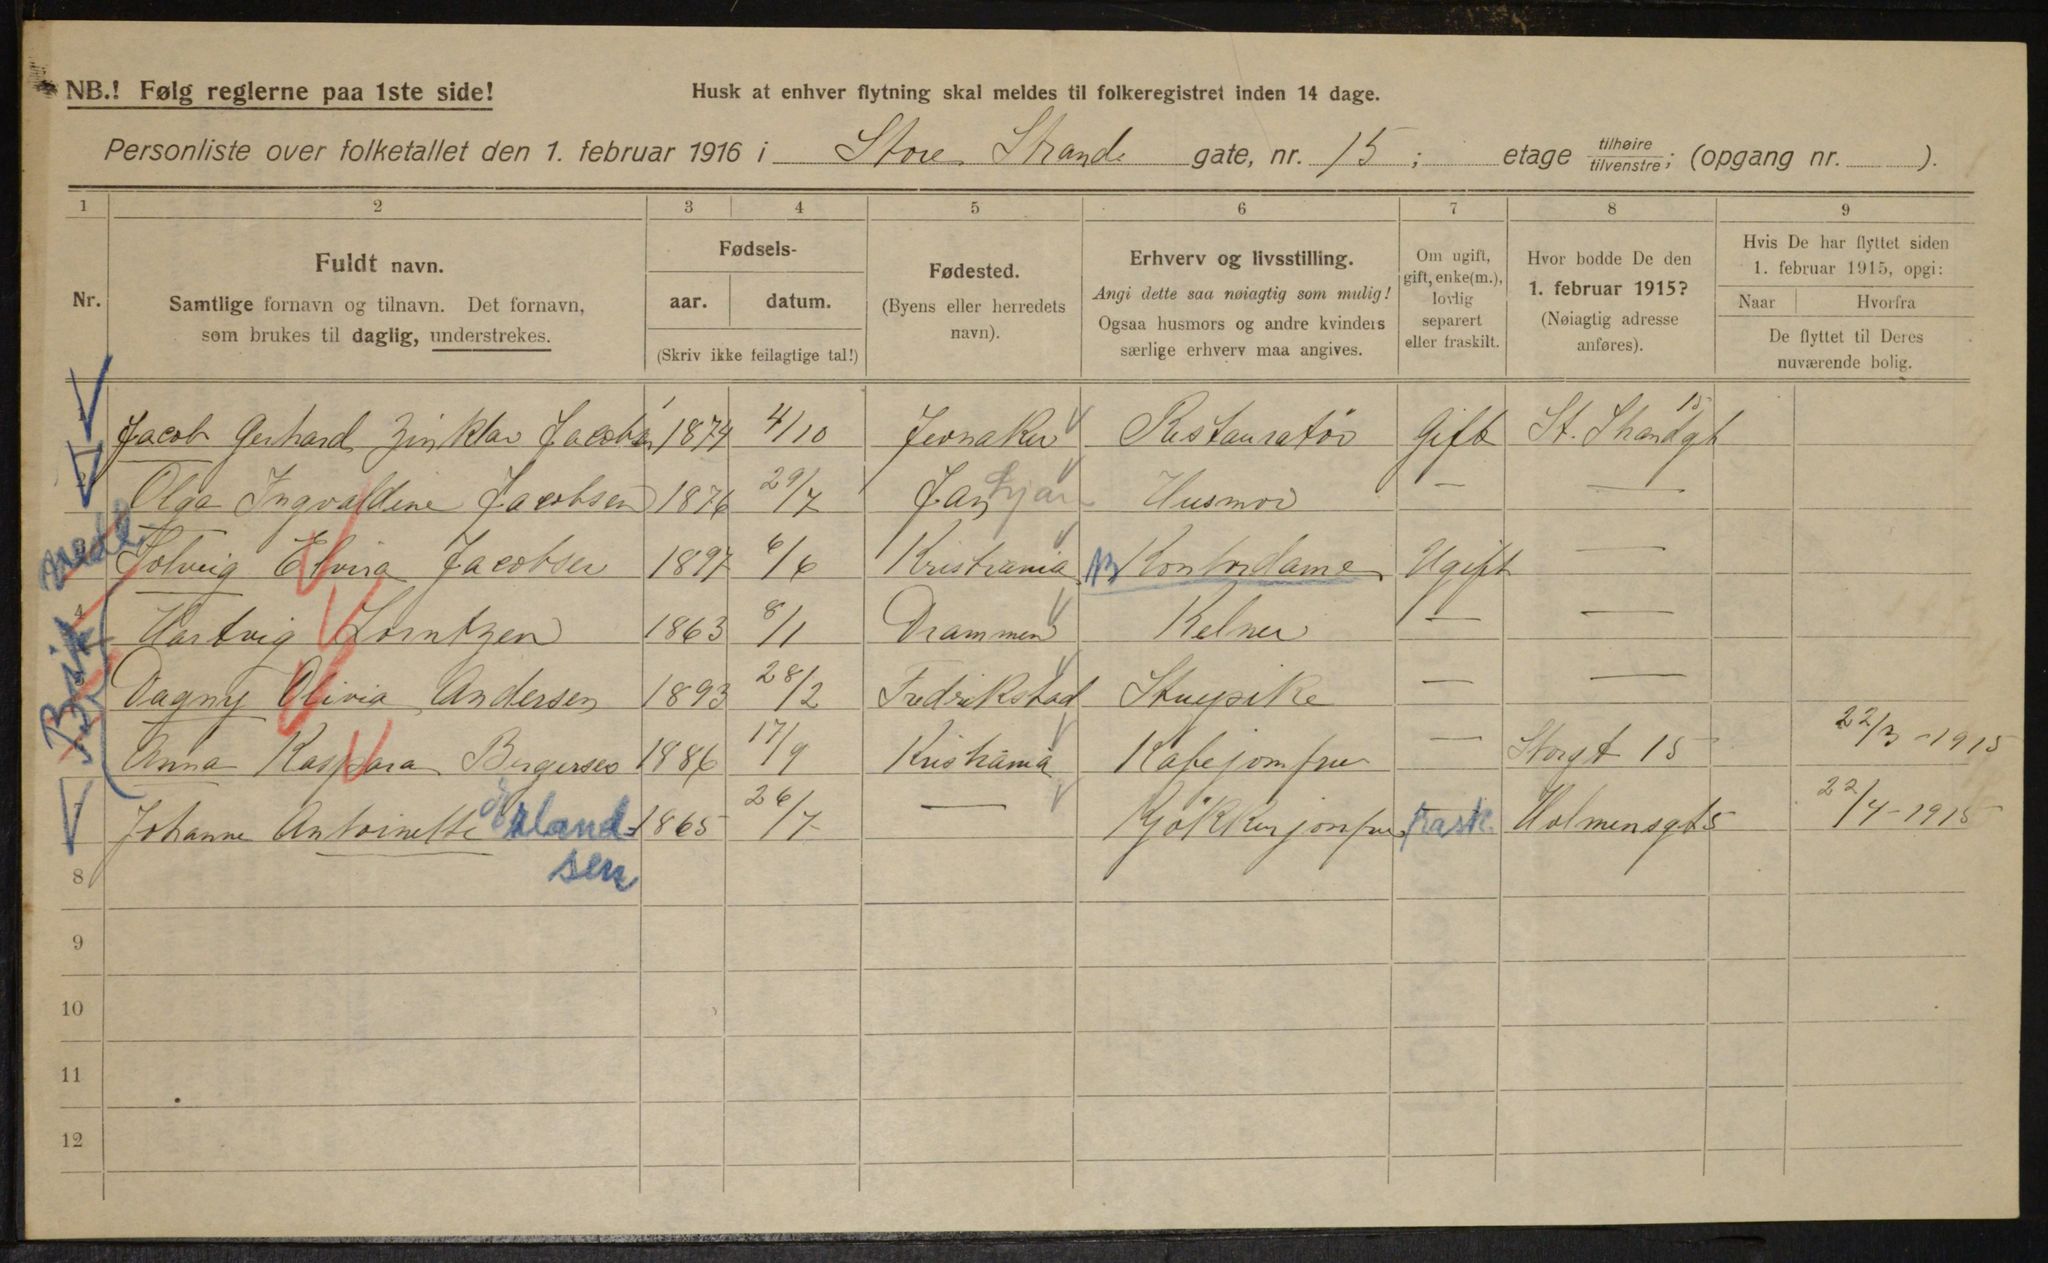 NB.! Følg reglerne paa 1ste side!
Husk at enhver flytning skal meldes til folkeregistret inden 14 dage.
Personliste over folketallet den 1. februar 1916 i Store Strand gate, nr. 15; etage tilhøire tilvenstre; (opgang nr. ).
1 2 3 4 5 6 7 8 9
Nr.
Fuldt navn.
Samtlige fornavn og tilnavn. Det fornavn,
som brukes til daglig, understrekes.
Fødsels-
aar. datum.
(Skriv ikke feilagtige tal!)
Fødested.
(Byens eller herredets
navn).
Erhverv og livsstilling.
Angi dette saa nøiagtig som mulig!
Ogsaa husmors og andre kvinders
særlige erhverv maa angives.
Om ugift,
gift, enke(m.),
lovlig
separert
eller fraskilt.
Hvor bodde De den
1. februar 1915?
(Nøiagtig adresse
anføres).
Hvis De har flyttet siden
1. februar 1915, opgi:
Naar Hvorfra
De flyttet til Deres
nuværende bolig.
Jacob Gerhard Zinklar Jacobsen 1874 4/10 Jevnaker Restauratør Gift St. Strandgt 15
Olga Ingvaldine Jacobsen 1876 29/7 Husmor — —
Solveig Elvira Jacobsen 1897 6/6 Kristiania Kontordame Ugift —
4 Hartvig Lorntzen 1863 8/1 Drammen Kelner — —
Dagny Olivia Andersen 1893 28/2 Fredrikstad Stuepike — —
Anna Kaspara Bergersen 1886 17/9 Kristiania Kafejomfru — Storgt 15 22/3-1915
Johanne Antoinette 1865 26/7 — Kjøkkenjomfru frask. Holmensgt 5 22/4-1915
8 sen
9
10
11
12